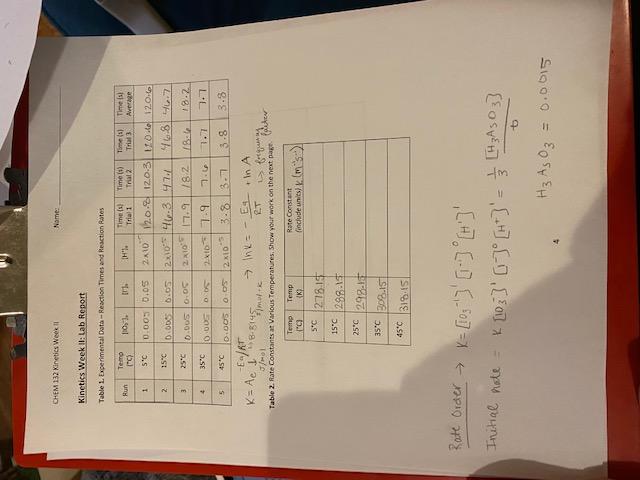 CHEM 132 Kinetics Week II Name:
Kinetics Week II: Lab Report
Table 1. Experimental Data – Reaction Times and Reaction Rates
Run Temp (°C) [IO₃⁻]₀ [I⁻]₀ [H⁺]₀ Time (s) Trial 1 Time (s) Trial 2 Time (s) Trial 3 Time (s) Average
1 5°C 0.005 0.05 2x10⁻⁵ 120.8 120.3 120.6 120.6
2 15°C 0.005 0.05 2x10⁻⁵ 46.3 47.1 46.8 46.7
3 25°C 0.005 0.05 2x10⁻⁵ 17.9 18.2 18.6 18.2
4 35°C 0.005 0.05 2x10⁻⁵ 7.9 7.6 7.7 7.7
5 45°C 0.005 0.05 2x10⁻⁵ 3.8 3.7 3.8 3.8
K = Ae^-Ea/RT → lnk = - Ea/RT + ln A
↳ frequency factor
J/mol 8.8145 J/mol·K
Table 2. Rate Constants at Various Temperatures. Show your work on the next page.
Temp (°C) Temp (K) Rate Constant (include units) k (m⁻¹s⁻¹)
5°C 278.15
15°C 288.15
25°C 298.15
35°C 308.15
45°C 318.15
Rate Order → K = [IO₃⁻]¹ [I⁻]⁰ [H⁺]¹
Initial rate = K [IO₃⁻]¹ [I⁻]⁰ [H⁺]¹ = 1/3 [H₃AsO₃]/t
H₃AsO₃ = 0.0015
4